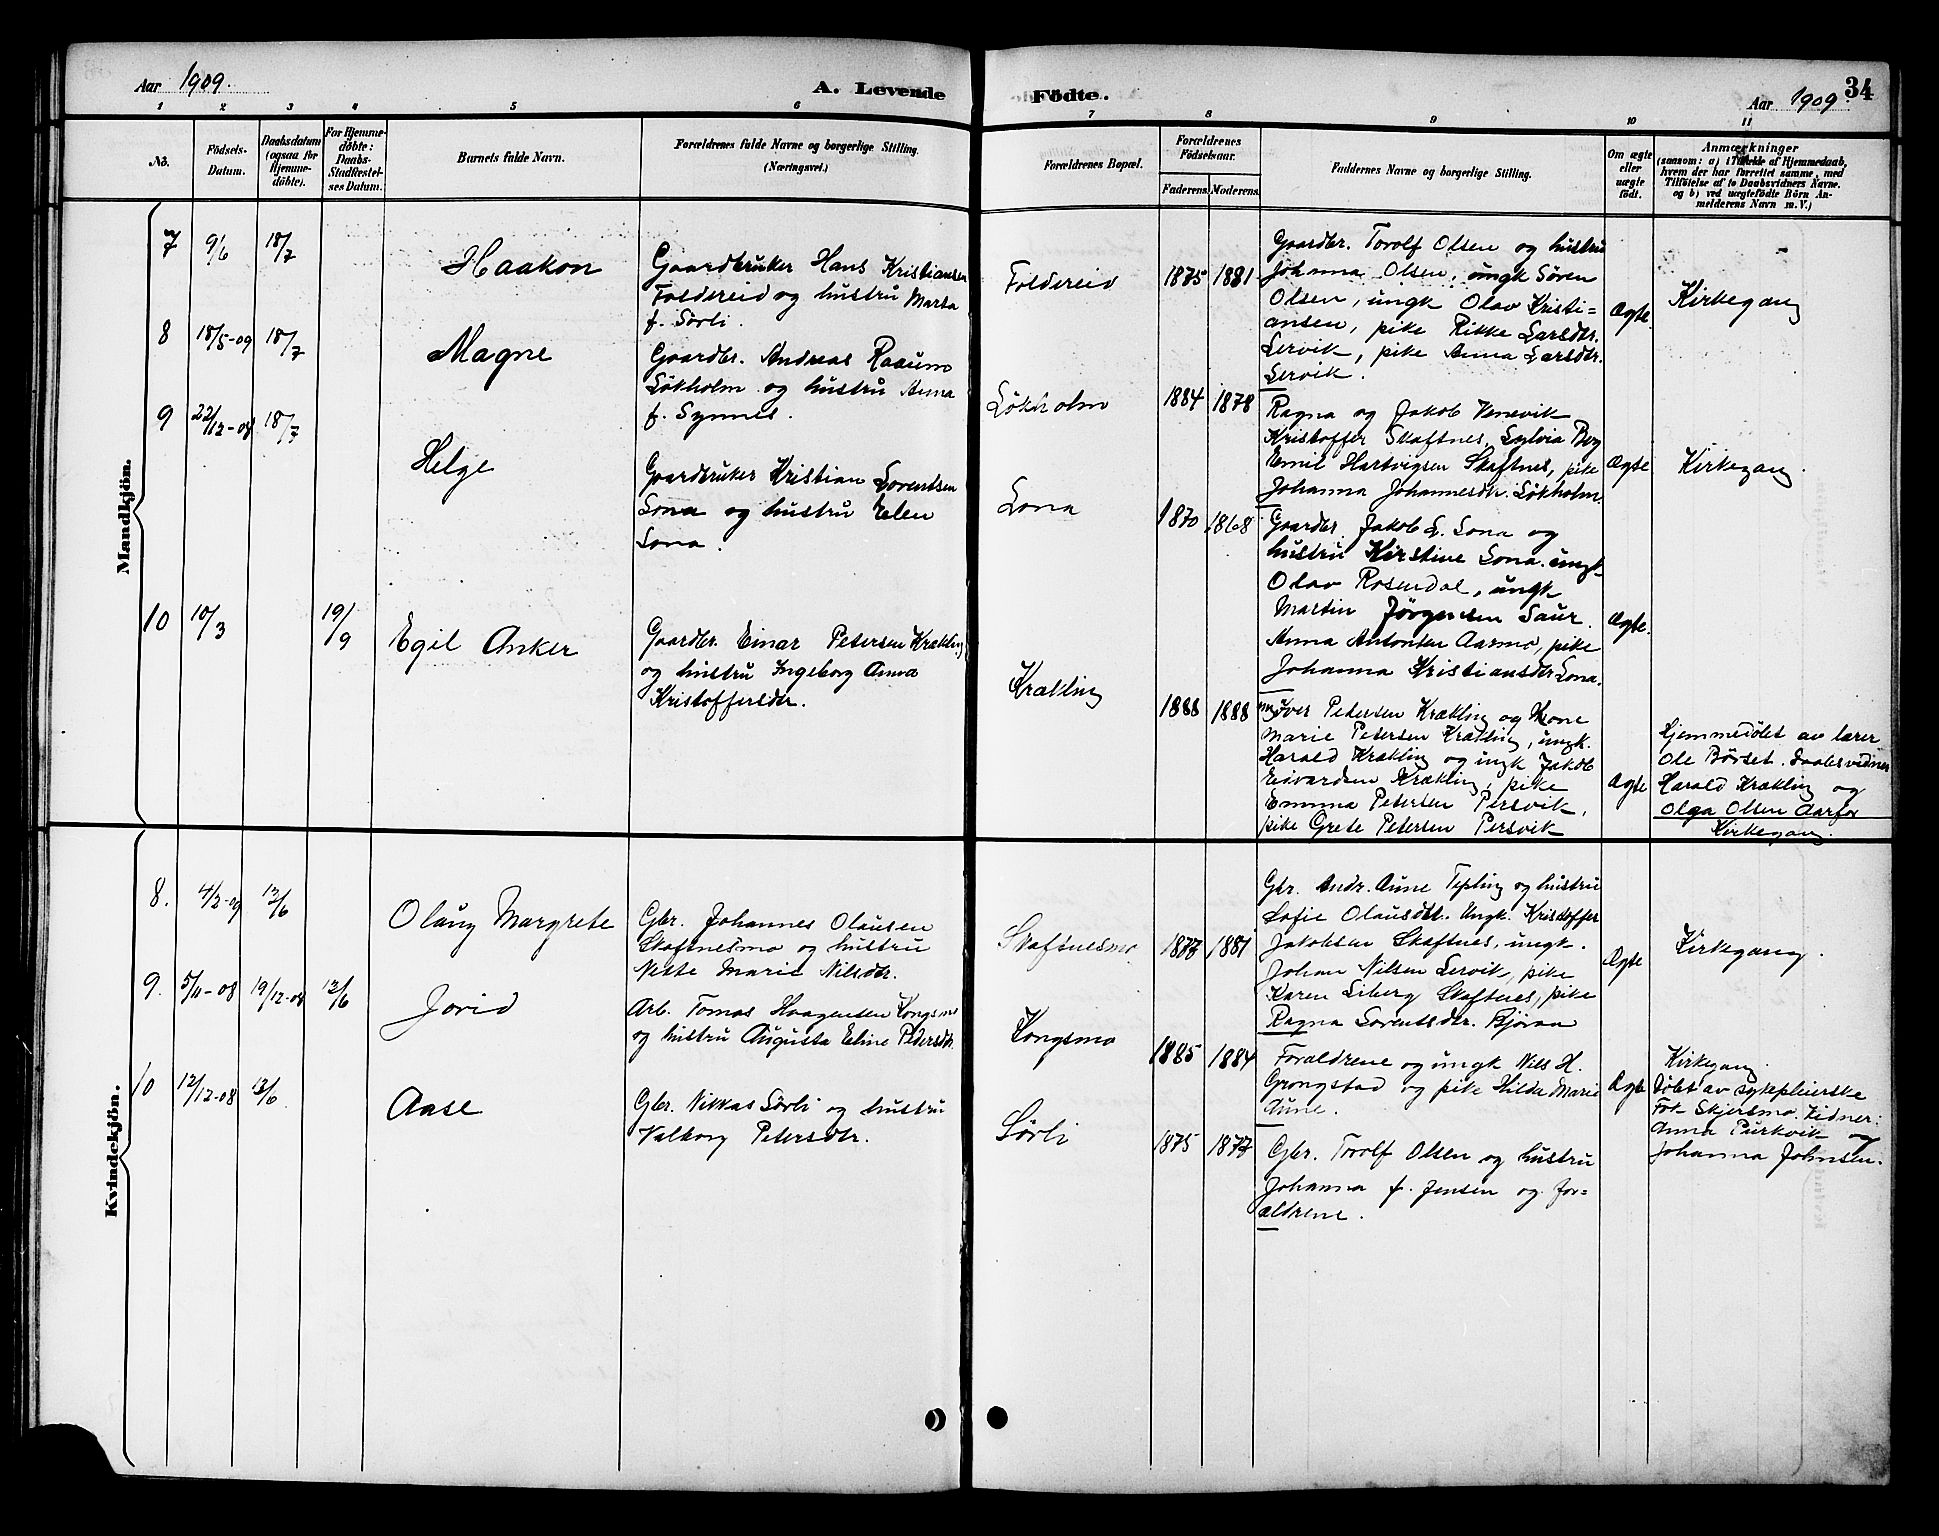 Aar 1909.
A. Levende
1 2 3 4 5 6
No.
Födsels-
Datum.
Daabsdatum
(ogsaa for
Hjemme-
döbte).
For Hjemme-
döbte:
Daabs-
Stadfæstel-
ses Datum.
Barnets fulde Navn.
Forældrenes fulde Navne og borgerlige Stilling.
(Næringsvei.)
Mandkjön.
7 9/6 18/7 Haakon
Gaardbruker Hans Kristiansen
Foldereid og hustru Marta
f. Sörli.
8 18/5-09 18/7 Magne
Gaardbr. Andreas Raaum
Lökholm og hustru Anna
f. Synnes.
9 22/12-08 18/7 Helge
Gaardbruker Kristian Lorentsen
Lona og hustru Elen
Lona.
10 10/3 19/9 Egil Anker
Gaardbr. Einar Petersen Krækling
og hustru Ingeborg Anna
Kristoffersdtr.
Kvindekjön.
8. 4/2-09 13/6 Olaug Margrete
Gbr. Johannes Olausen
Skaftnesmo og hustru
Nette Marie Nilsdtr.
9. 5/11-08 19/12-08 13/6 Jorid
Arb. Tomas Haagensen Kongsmo
og hustru Augusta Eline Pedersdtr.
10 12/12-08 13/6 Aase
Gbr. Niklas Sörli og hustru
Valborg Petersdtr.
Födte.
34
Aar 1909.
7 8 9 10 11
Forældrenes Bopæl.
Forældrenes
Födselsaar.
Faderens. Moderens.
Faddernes Navne og borgerlige Stilling.
Om ægte
eller
uægte
födt.
Anmærkninger
(saasom: a) i Tilfælde af Hjemmedaab,
hvem der har forrettet samme, med
Tilföielse af to Daabsvidners Navne,
og b) ved uægtefödte Börn An-
melderens Navn m. V.)
Foldereid 1875 1881
Gaardbr. Torolf Olsen og hustru
Johanna Olsen, ungk Sören
Olsen, ungk Olav Kristi=
ansen, pike Rikke Larsdtr.
Lervik, pike Anna Larsdtr.
Lervik.
Ægte. Kirkegang
Lökholm 1884 1878
Ragna og Jakob Venevik
Kristoffer Skaftnes, Sylvia Berg
Emil Hartvigsen Skaftnes, pike
Johanna Johannesdtr. Lökholm.
Ægte Kirkegang.
Lona 1870 1868
Gaardbr. Jakob L. Lona og
hustru Kirstine Lona. ungk
Olav Rosendal, ungk
Martin Jörgensen Saur.
Anna Antonsen Aarmo, pike
Johanna Kristiansdtr Lona.
Ægte.
Krækling 1888 1888
Iver Petersen Krækling og Kone
Marie Petersen Krækling, ungk.
Harald Krækling og ungk Jakob
Edvardsen Krækling, pike
Emma Petersen Persvik,
pike Grete Petersen Persvik
Ægte
Hjemmedöbt av lærer
Ole Börset. Daabsvidner
Harald Krækling og
Olga Olsen Aarfor
Kirkegang.
Skaftnesmo 1877 1881
Gbr. Andr. Aune Tepling og hustru
Sofie Olausdtr. Ungk. Kristoffer
Jakobsen Skaftnes, ungk.
Johan Nilsen Lervik, pike
Karen Liberg Skaftnes, pike
Ragna Lorentsdtr. Björaa
Ægte Kirkegang.
Kongsmo 1885 1884
Foraldrene og ungk Nils H.
Grongstad og pike Hilda Marie
Aune.
Ægte
Kirkegang.
Döbt av sykepleierske
Skjersmo. Vidner:
Anna Purkvik og
Johanna Johnsen.
Sörli 1875 1877
Gbr. Torolf Olsen og hustru
Johanna f. Jensen og for=
ældrene.